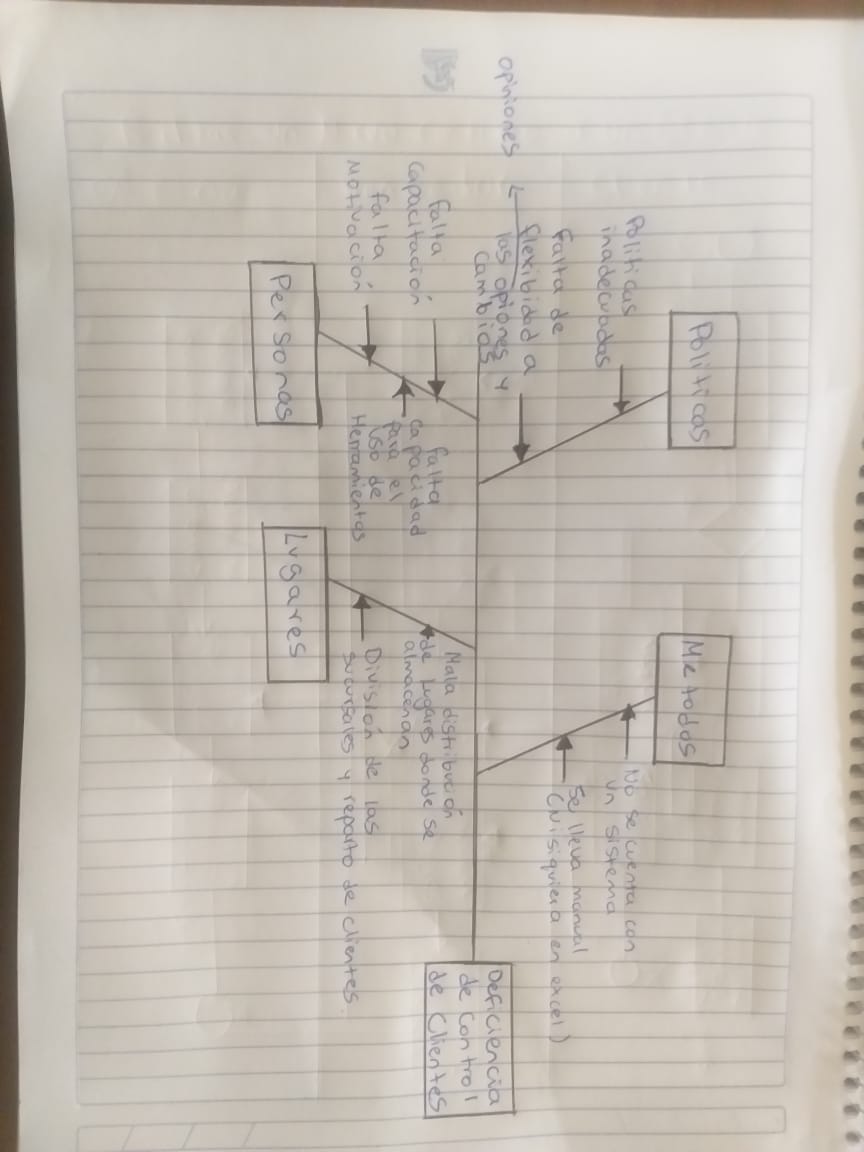 Politicas
Metodos
Politicas
inadecuadas
No se cuenta con
un sistema
Falta de
flexibidad a
las opiones y
cambios
opiniones
Se lleva manual
(Ni siquiera en excel)
Deficiencia
de control
de Clientes
falta
capacitación
falta
Motivación
falta
capacidad
para el
uso de
Herramientas
Mala distribución
de Lugares donde se
almacenan
División de las
sucursales y reparto de clientes
Personas
Lugares